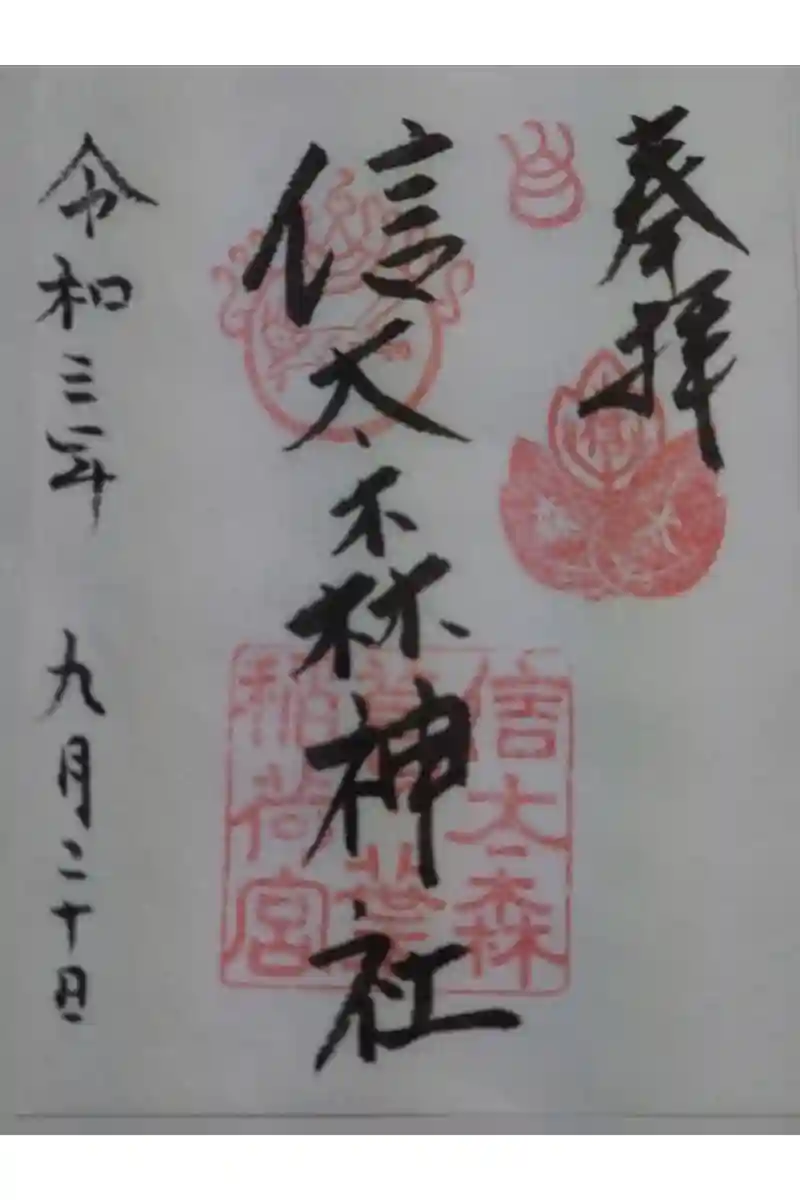 奉拝
信太森神社
令和三年 九月二十日
信太森
葛葉
稲荷宮